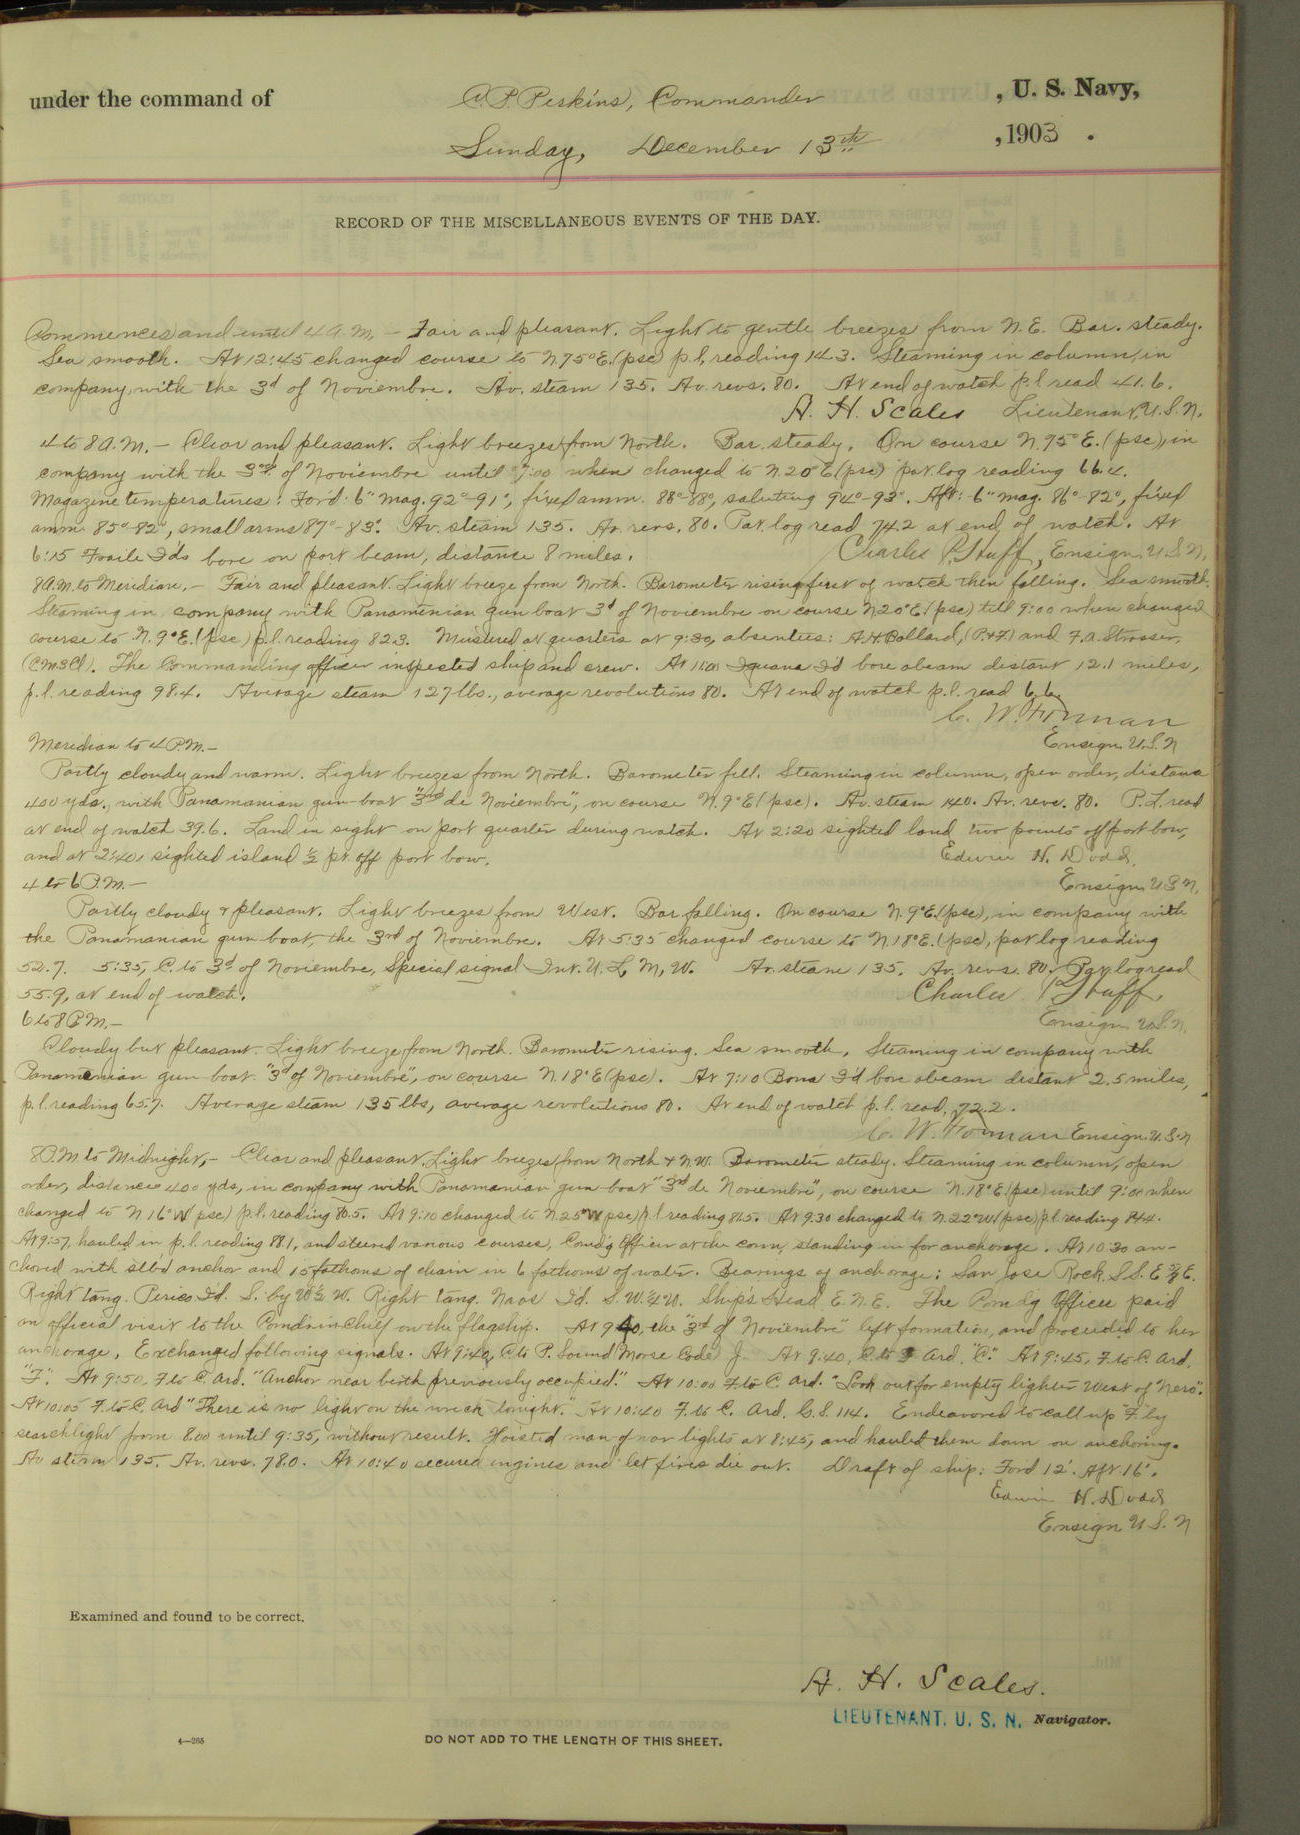 under the command of C. P. Perkins, Commander , U. S. Navy,
Sunday, December 13th , 1903 .
RECORD OF THE MISCELLANEOUS EVENTS OF THE DAY.
Commences and until 4 A.M. – Fair and pleasant. Light to gentle breezes from N.E. Bar. steady.
Sea smooth. At 12:45 changed course to N.75°E.(psc) p.l. reading 14.3. Steaming in column, in
company, with the 3d of Noviembre. Av. steam 135. Av. revs. 80. At end of watch p.l. read 41.6.
A. H. Scales Lieutenant, U.S.N.
4 to 8 A.M. – Clear and pleasant. Light breezes from North. Bar. steady. On course N.75°E.(psc), in
company with the 3rd of Noviembre until 7:00 when changed to N.20°E.(psc) pat. log reading 66.4.
Magazine temperatures: Ford: 6" mag. 92°–91°, fixed amm. 88°–88°, saluting 94°–93°. Aft: 6" mag. 86°–82°, fixed
amm. 85°–82°, small arms 87°–83°. Av. steam 135. Av. revs. 80. Pat. log read 74.2 at end of watch. At
6:15 Fraile I'ds bore on port beam, distance 8 miles. Charles P. Huff, Ensign, U.S.N.
8 A.M. to Meridian. – Fair and pleasant. Light breeze from North. Barometer rising first of watch then falling. Sea smooth.
Steaming in company with Panamenian gun boat 3d of Noviembre on course N.20°E.(psc) till 9:00 when changed
course to N.9°E.(psc) p.l. reading 82.3. Mustered at quarters at 9:30, absentees: A.H. Pollard, and F.A. Strosser,
The Commanding officer inspected ship and crew. At 11:00 Iguana I'd bore abeam distant 12.1 miles,
p.l. reading 98.4. Average steam 127 lbs., average revolutions 80. At end of watch p.l. read 6.6.
C. W. Forman
Meridian to 4 P.M. – Ensign U.S.N
Partly cloudy and warm. Light breezes from North. Barometer fell. Steaming in column, open order, distance
400 yds., with Panamanian gun-boat "3rd de Noviembre", on course N.9°E(psc). Av. steam 140. Av. revs. 80. P.L. read
at end of watch 39.6. Land in sight on port quarter during watch. At 2:20 sighted land two points off port bow,
and at 2:40, sighted island ½ pt. off port bow. Edwin H. Dodd,
4 to 6 P.M. – Ensign U.S.N.
Partly cloudy & pleasant. Light breezes from West. Bar falling. On course N.9°E.(psc), in company with
the Panamanian gun boat, the 3rd of Noviembre. At 5:35 changed course to N.18°E.(psc), pat log reading
52.7. 5:35, C. to 3d of Noviembre, Special signal Int. U, L, M, W. Av. steam 135. Av. revs. 80. Pat. log read
55.9, at end of watch. Charles P. Huff,
6 to 8 P.M. – Ensign U.S.N.
Cloudy but pleasant. Light breeze from North. Barometer rising. Sea smooth. Steaming in company with
Panamenian gun boat "3d of Noviembre", on course N.18°E(psc). At 7:10 Bona I'd bore abeam distant 2.5 miles,
p.l. reading 65.7. Average steam 135 lbs, average revolutions 80. At end of watch p.l. read, 72.2.
C. W. Forman Ensign U.S.N
8 P.M to Midnight, – Clear and pleasant. Light breezes from North & N.W. Barometer steady. Steaming in column, open
order, distance 400 yds, in company with Panamanian gun-boat "3rd de Noviembre", on course N.18°E.(psc) until 9:00 when
changed to N.16°W(psc) p.l. reading 80.5. At 9:10 changed to N.25°W(psc) p.l. reading 81.5. At 9:30 changed to N.22°W(psc) p.l. reading 84.4.
At 9:57, hauled in p.l. reading 88.1, and steered various courses, Comd'g Officer at the conn, standing in for anchorage. At 10:30 an-
chored with stb'd anchor and 15 fathoms of chain in 6 fathoms of water. Bearings of anchorage: San Jose Rock, S.S.E.¾E.
Right tang. Perico I'd. S. by W.½ W. Right tang. Naos I'd. S.W.¼W. Ship's Head E.N.E. The Com'd'g Officer paid
an official visit to the Comdr-in-Chief on the flagship. At 9:40, the "3rd of Noviembre" left formation, and proceeded to her
anchorage. Exchanged following signals. At 9:40, C to P. Sound Morse Code J. At 9:40, C. to Ard. "C." At 9:45, F. to C. Ard.
"F". At 9:50, F. to C. Ard. "Anchor near berth previously occupied." At 10:00 F. to C. Ard. "Look out for empty lighter West of "Nero".
At 10:05 F. to C. Ard "There is no light on the wreck tonight." At 10:40 F. to C. Ard. G.S. 114. Endeavored to call up "F" by
searchlight from 8:00 until 9:35, without result. Hoisted man of war lights at 8:45, and hauled them down on anchoring.
Av steam 135. Av. revs. 78.0. At 10:40 secured engines and let fires die out. Draft of ship: Ford 12'. Aft. 16'.
Edwin H. Dodd
Ensign U.S.N
Examined and found to be correct.
A. H. Scales.
LIEUTENANT. U. S. N. Navigator.
4—265
DO NOT ADD TO THE LENGTH OF THIS SHEET.